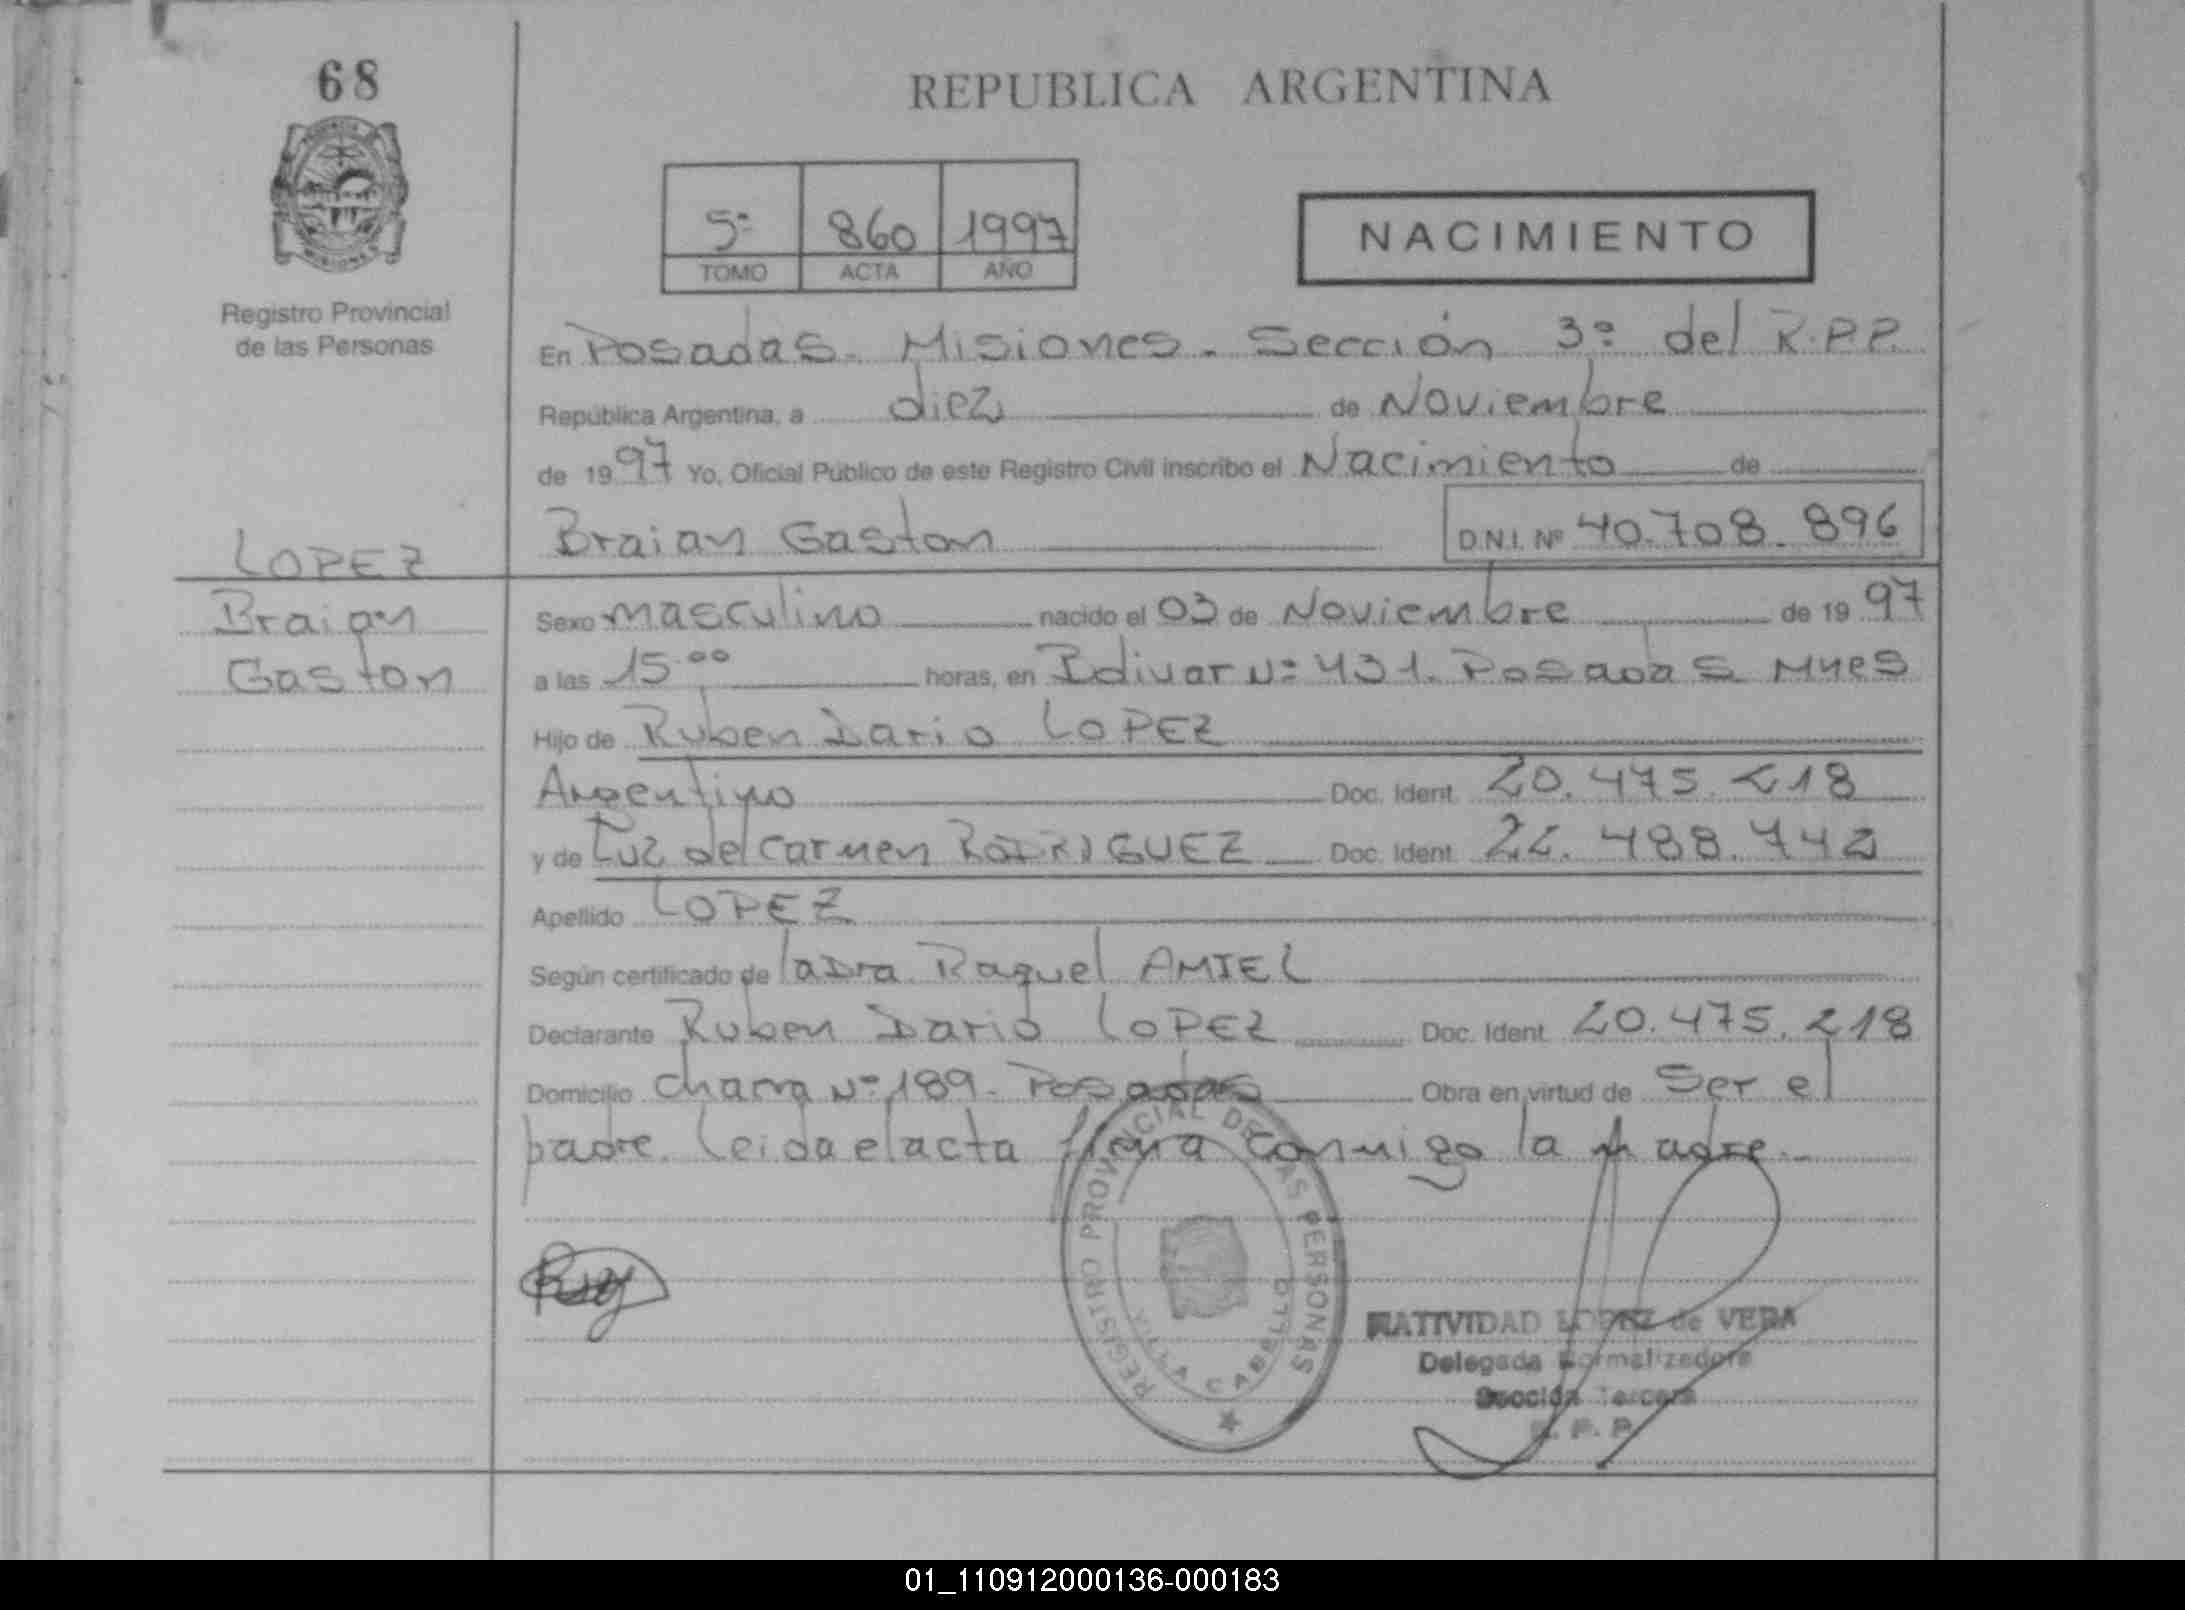 68
REPUBLICA ARGENTINA
5º 860 1997
TOMO ACTA AÑO
NACIMIENTO
Registro Provincial
de las Personas
En Posadas. Misiones. Sección 3º del R.P.P.
República Argentina, a diez de Noviembre
de 1997 Yo, Oficial Público de este Registro Civil inscribo el Nacimiento de
Braian Gaston D.N.I. Nº 40.708.896
LOPEZ
Braian
Gaston
Sexo masculino nacido el 03 de Noviembre de 1997
a las 15.00 horas, en Bolivar Nº 431. Posadas Mnes
Hijo de Ruben Dario LOPEZ
Argentino Doc. Ident. 20.475.218
y de Luz del Carmen RODRIGUEZ Doc. Ident. 22.488.742
Apellido LOPEZ
Según certificado de la Dra. Raquel AMIEL
Declarante Ruben Dario LOPEZ Doc. Ident. 20.475.218
Domicilio chacra Nº 189. Posadas Obra en virtud de Ser el
padre. Leida el acta firma conmigo la madre.
REGISTRO PROVINCIAL DE LAS PERSONAS
CABELLO
NATIVIDAD LOPEZ de VERA
Delegada Normalizadora
Sección Tercera
R. P. P.
01_110912000136-000183